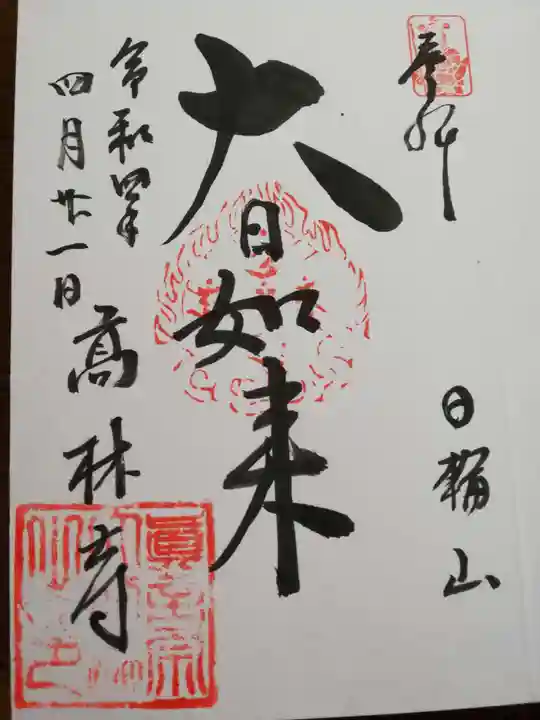 奉拝
日輪山
大日如来
令和四年
四月廿一日
髙林寺